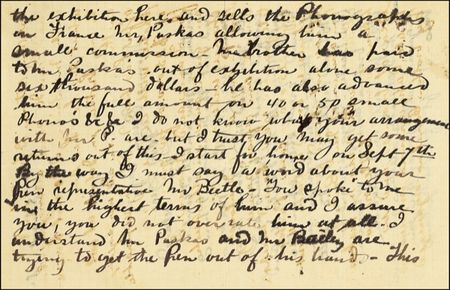 the exhibition here and sells the Phonographs
in France Mr. Puskas allowing him a
small commission. My brother has paid
to Mr Puskas out of exhibition alone some
six thousand dollars – he has also advanced
him the full amount on 40 or 50 small
Phono's &c &c I do not know what your arrangement
with Mr P. are – but I trust you may get some
returns out of this – I start for home on Sept 7th.
By the way I must say a word about your
pen representative Mr Beetle – You spoke to me
in the highest terms of him and I assure
you, you did not over rate him at all. I
understand Mr Puskas and Mr Bailey are
trying to get the Pen out of his hands – This